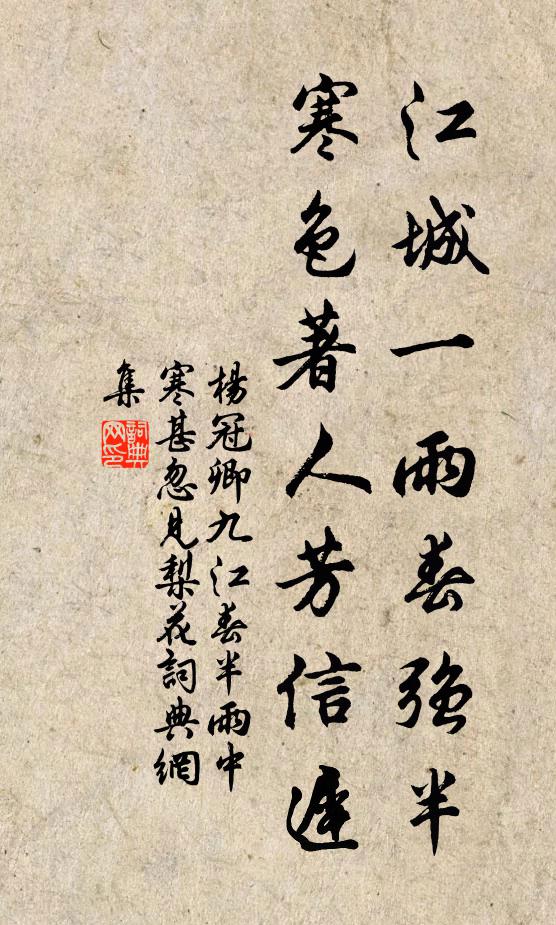 江城一雨春強半
寒色著人芳信遲
楊冠卿九江春半雨中
寒甚忽見梨花詞典網
集
詞典
网印